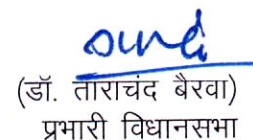 (डॉ. ताराचंद बैरवा)
प्रभारी विधानसभा